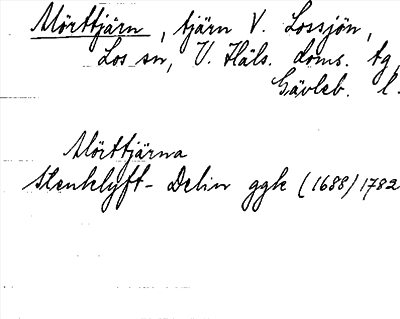 Mörttjärn, tjärn V. Lossjön,
Los sn, V. Häls. doms. tg,
Gävleb. l.
Mörttjärna
Stenklyft- Delin ggk (1688) 1782